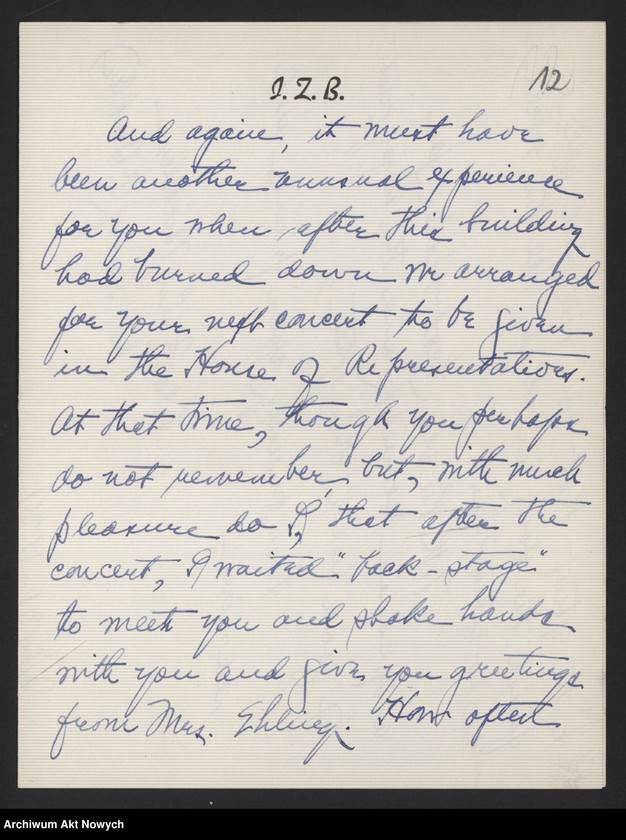 12
I. Z. B.
And again, it must have
been another unusual experience
for you when after this building
had burned down we arranged
for your next concert to be given
in the House of Representatives.
At that time, though you perhaps
do not remember, but, with much
pleasure do I, that after the
concert, I waited "back-stage"
to meet you and shake hands
with you and give you greetings
from Mrs. How often
Archiwum Akt Nowych